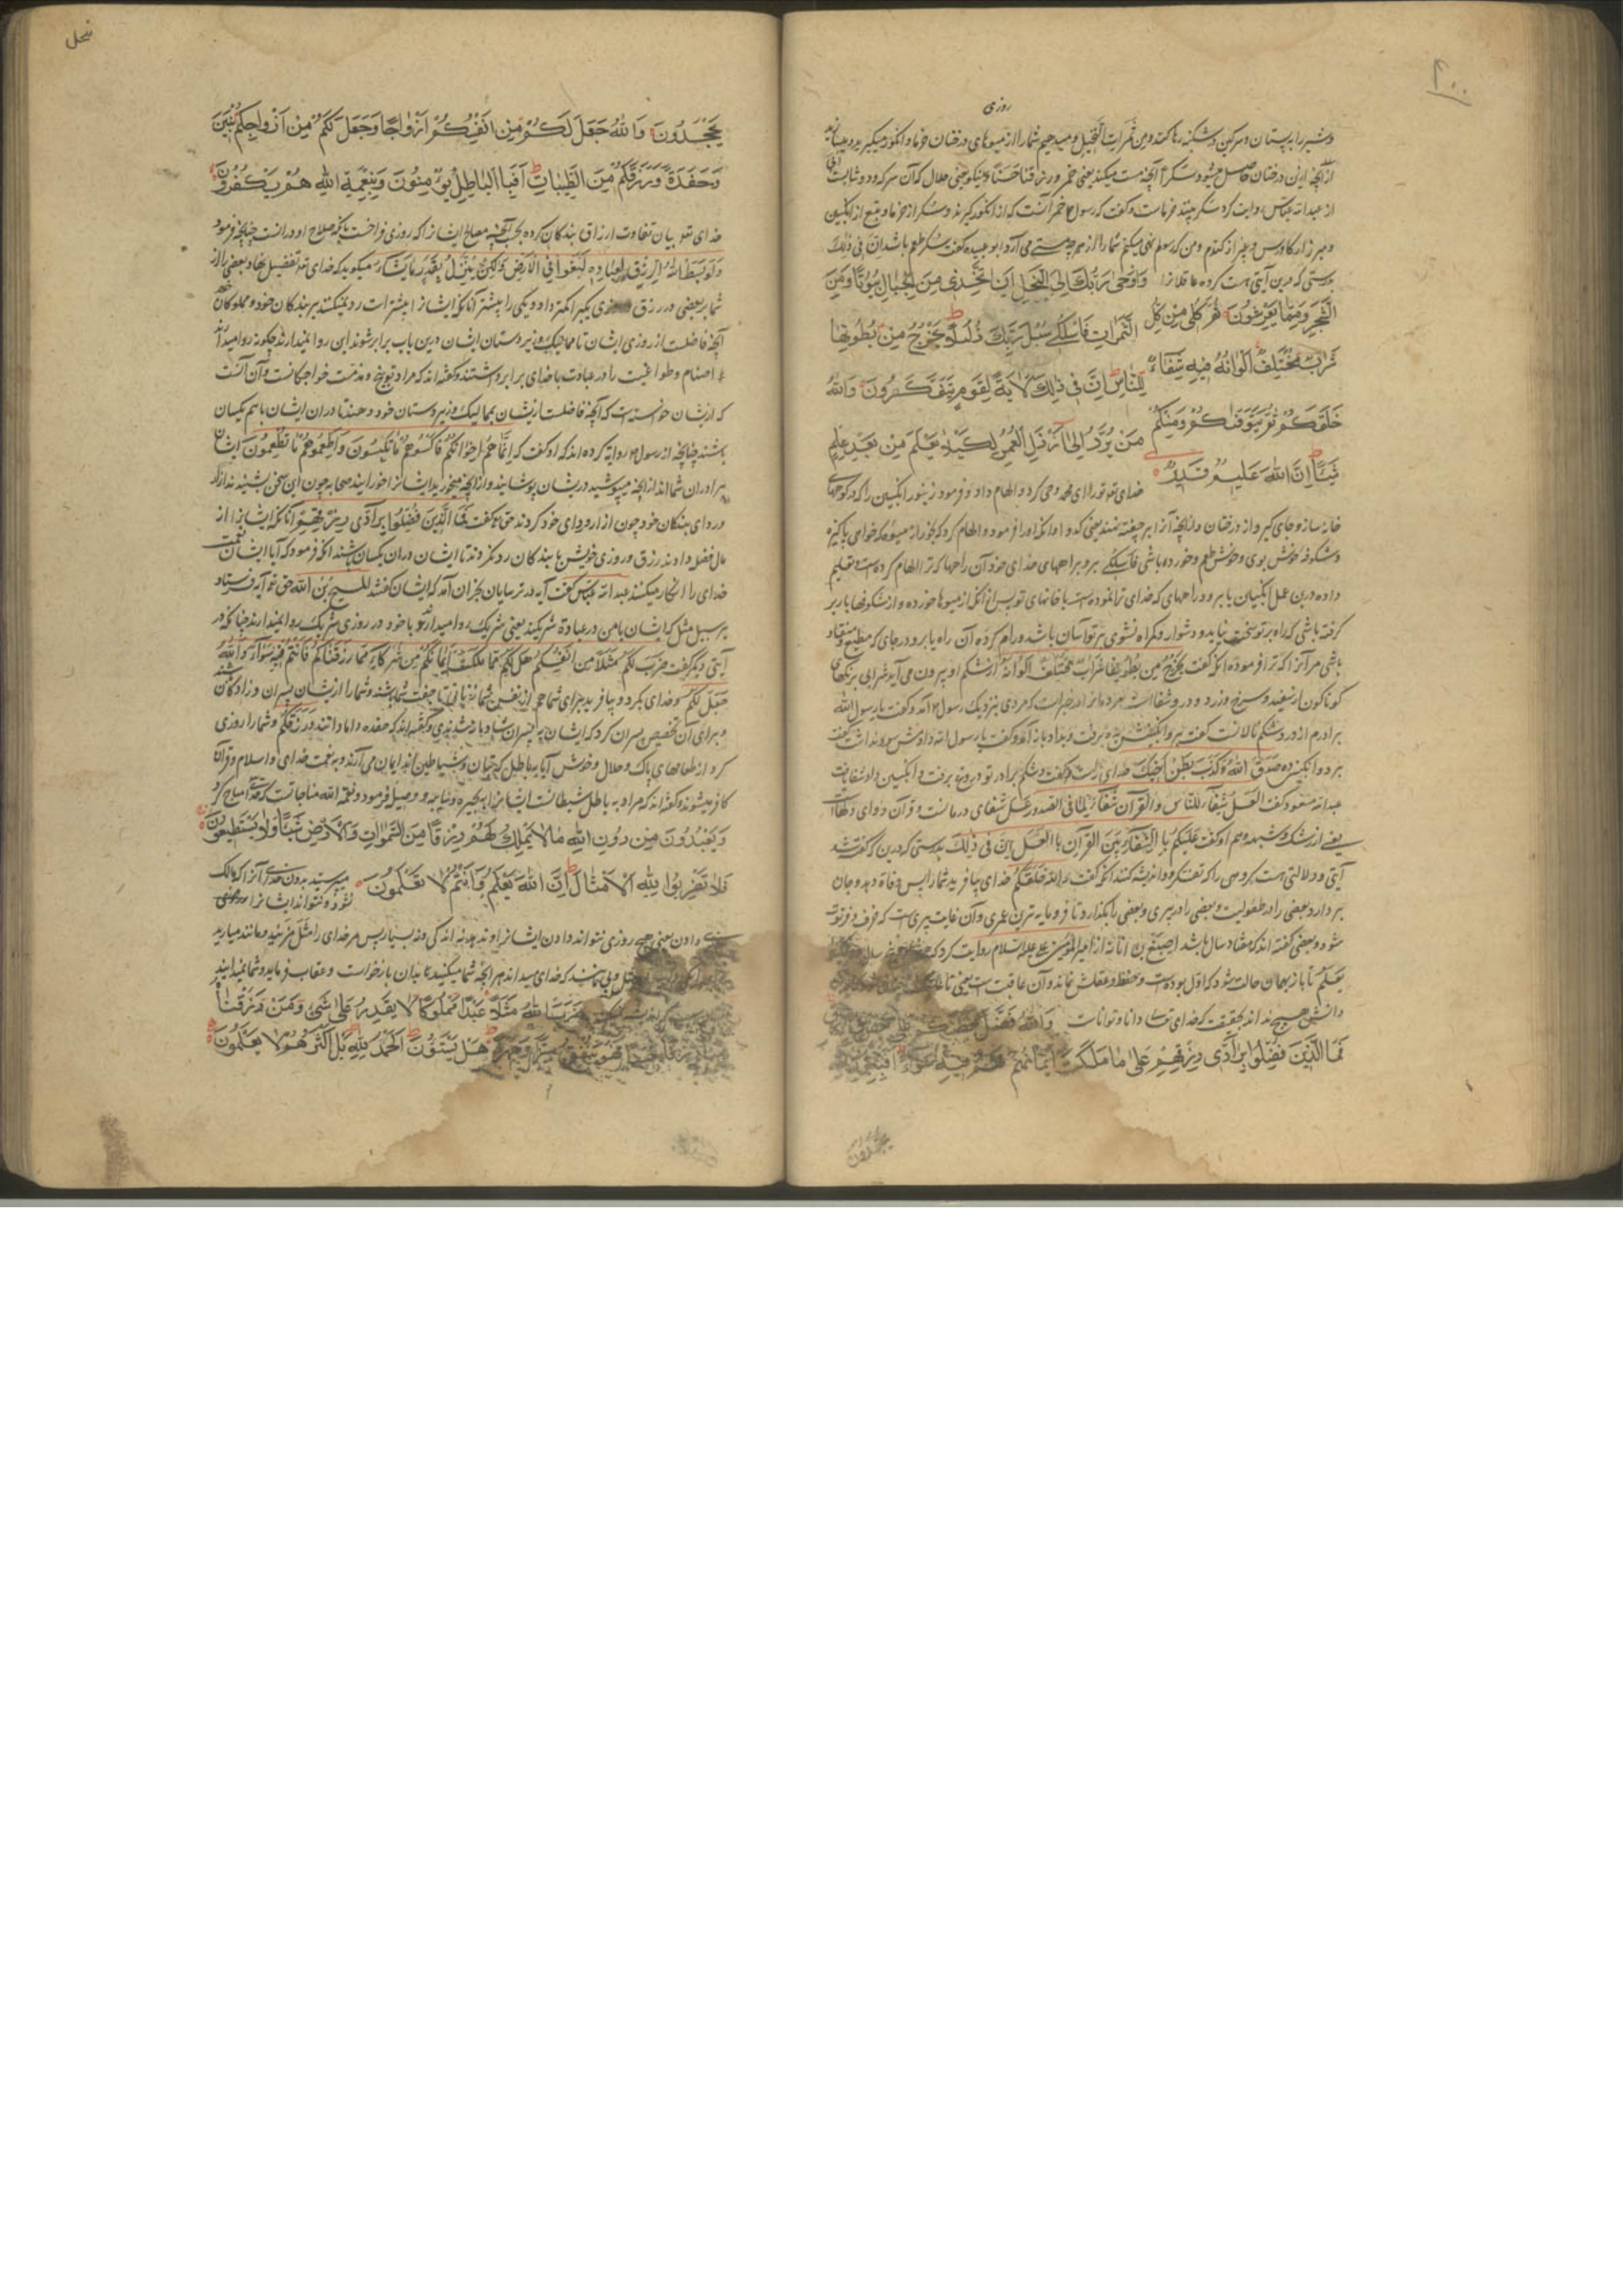 ۴۰۰
روزی
و شیر را به پستان و سرکین در شکنبه رها کند و من ثمرات النخیل و میدهیم شما را از میوهای درختان خرما و انکور میکیرید
از آنچه ازین درختان حاصل میشود سکرا آنچه مست میکند یعنی خمر و رزقا حسنا و نیکو یعنی حلال که آن سرکه و دوشابست
از عبدالله عباس روایت کرد سکر نبیذ خرماست و کفت که رسول خمر آنست که از انکور کیرند و سکر از خرما و بتع از انکبین
و مزر از کاورس و غبیرا از کندم و من که رسولم نهی میکنم شما را از هرچه مستی می آرد ابو عبیده کفت سکر طعم باشد ان فی ذلک
بدرستی که درین آیتی هست کروه عاقلانرا وَاَوْحٰى رَبُّكَ اِلَى النَّحْلِ اَنِ اتَّخِذِي مِنَ الْجِبَالِ بُيُوتًا وَمِنَ
الشَّجَرِ وَمِمَّا يَعْرِشُونَ ثُمَّ كُلِي مِنْ كُلِّ الثَّمَرَاتِ فَاسْلُكِي سُبُلَ رَبِّكِ ذُلُلًا يَخْرُجُ مِنْ بُطُونِهَا
شَرَابٌ مُخْتَلِفٌ اَلْوَانُهُ فِيهِ شِفَاءٌ لِلنَّاسِ اِنَّ فِي ذٰلِكَ لَاٰيَةً لِقَوْمٍ يَتَفَكَّرُونَ وَاللّٰهُ
خَلَقَكُمْ ثُمَّ يَتَوَفَّاكُمْ وَمِنْكُمْ مَنْ يُرَدُّ اِلٰى اَرْذَلِ الْعُمُرِ لِكَيْ لَا يَعْلَمَ مِنْ بَعْدِ عِلْمٍ
شَيْئًا اِنَّ اللّٰهَ عَلِيمٌ قَدِيرٌ خدای تو تو را ای محمد وحی کرد و الهام داد و فرمود زنبور انکبین را که در کوههای
خانه ساز و جای کیر و از درختان و از آنچه آنرا بر چفته نهند یعنی کدو او انکه او را فرمود و الهام کرد که بخور از میوها که خواهی پاکیزه
و شکوفه خوش بوی و خوش طعم و خورده باشی فاسلکی برو براههای خدای خود آن راهها که ترا الهام کرده است و تعلیم
داده درین عمل انکبین یا برو در راههای که خدای ترا نموده است با خانهای تو پس از انکه از میوها خورده و از شکوفها بار بر
کرفته باشی که راه بر تو سخت نیاید و دشوار و کمراه نشوی بر تو آسان باشد و رام کرده آن راه یا برو در جای که مطیع و منقاد
باشی مر آنرا که ترا فرموده انکه کفت یخرج من بطونها شراب مختلف الوانه از شکم او بیرون می آید شرابی برنکهای
کوناکون از سفید و سرخ و زرد و درو شفا است مردمانرا در خبر است که مردی بنزدیک رسول آمد و کفت یا رسول الله
برادرم از درد شکم نالانست کفت برو انکبینش ده برفت و بداد باز آمد و کفت یا رسول الله دادمش سود نداشت کفت
برو و انکبین ده صدق الله و کذب بطن اخیک خدای راست کفت و شکم برادر تو دروغ برفت و انکبین داد شفا یافت
عبدالله مسعود کفت العسل شفاء للناس و القرآن شفاء لما فی الصدور عسل شفای درمانست و قرآن دوای دلها
یعنی از شک و شبهه و هم او کفت علیکم بالشفائین القرآن و العسل ان فی ذلک بدرستی که درین که کفته شد
آیتی و دلالتی هست کروهی را که تفکر و اندیشه کنند انکه کفت و الله خلقکم خدای بیافرید شما را پس وفاة دهد و جان
بردارد بعضی را در طفولیت و بعضی را در پیری و بعضی را بکذارد تا فرومایه ترین عمری و آن غایت پیری است که خرف و فرتوت
شود و بعضی کفته اند که هفتاد سال باشد اصبغ بن نباته از امیرالمؤمنین علی علیه السلام روایت کرد که
یعلم تا باز بهمان حالت شود که اول بوده است و حفظ و عقلش نماند و آن عاقبت است یعنی تا
دانش هیچ نداند بحقیقت که خدای تعالی دانا و تواناست وَاللّٰهُ فَضَّلَ بَعْضَكُمْ عَلٰى بَعْضٍ
فَمَا الَّذِينَ فُضِّلُوا بِرَادِّي رِزْقِهِمْ عَلٰى مَا مَلَكَتْ اَيْمَانُهُمْ فَهُمْ فِيهِ سَوَاءٌ اَفَبِنِعْمَةِ
یجحدون
نحل
يَجْحَدُونَ وَاللّٰهُ جَعَلَ لَكُمْ مِنْ اَنْفُسِكُمْ اَزْوَاجًا وَجَعَلَ لَكُمْ مِنْ اَزْوَاجِكُمْ بَنِينَ
وَحَفَدَةً وَرَزَقَكُمْ مِنَ الطَّيِّبَاتِ اَفَبِالْبَاطِلِ يُؤْمِنُونَ وَبِنِعْمَةِ اللّٰهِ هُمْ يَكْفُرُونَ
خدای تعو بیان تفاوت ارزاق بندکان کرده بحسب مصالح ایشان را که روزی فراخست بآنکه صلاح او درانست چنانچه فرمود
وَلَوْ بَسَطَ اللّٰهُ الرِّزْقَ لِعِبَادِهِ لَبَغَوْا فِي الْاَرْضِ وَلٰكِنْ يُنَزِّلُ بِقَدَرٍ مَا يَشَاءُ میکوید که خدای تعه تفضیل نهاد بعضی را از
شما بر بعضی در رزق یکیرا کمتر داد و یکی را بیشتر آنانکه ایشانرا بیشتر است رد نمیکنند بر بندکان خود و مملوکان
آنچه فاضلست از روزی ایشان تا ممالیک و زیردستان ایشان درین باب برابر شوند این روا نمیدارند چکونه روا میدارند
که اصنام و طواغیت را در عبادت با خدای برابر داشتند و کفته اند که مراد توبیخ و مذمت خواجکانست و آن آنست
که از ایشان خواسته است که آنچه فاضلست ازیشان بممالیک و زیردستان خود دهند تا در ان ایشان باهم یکسان
باشند چنانچه از رسول روایة کرده اند که او کفت که اِنَّمَا هُمْ اِخْوَانُكُمْ فَاكْسُوهُمْ مِمَّا تَكْتَسُونَ وَاَطْعِمُوهُمْ مِمَّا تَطْعَمُونَ ایشان
برادران شما اند از آنچه میپوشید دریشان پوشانید و از آنچه میخورید ایشانرا خورانید صحابه چون این سخن بشنیدند ازار
و ردای بندکان خود چون ازار و ردای خود کردند حق تع کفت فَمَا الَّذِينَ فُضِّلُوا بِرَادِّي رِزْقِهِمْ آنانکه ایشانرا از
مال فضل دادند رزق و روزی خویش با بندکان رد نکردند تا ایشان در ان یکسان باشند انکه فرمود که آیا ایشان نعمت
خدای را انکار میکنند عبدالله عباس کفت آیه در ترسایان نجران آمد که ایشان کفتند المسیح بن الله حق تع آیه فرستاد
بر سبیل مثل که ایشان با من در عبادة شریکند یعنی شریک روا میدارند و با خود در روزی شریک روا نمیدارند چنانکه در
آیتی دیکر کفت ضَرَبَ لَكُمْ مَثَلًا مِنْ اَنْفُسِكُمْ هَلْ لَكُمْ مِمَّا مَلَكَتْ اَيْمَانُكُمْ مِنْ شُرَكَاءَ فِيمَا رَزَقْنَاكُمْ فَاَنْتُمْ فِيهِ سَوَاءٌ وَاللّٰهُ
جَعَلَ لَكُمْ و خدای بکرد و بیافرید برای شما هم از نفس شما زنانی تا جفت شما باشند و شما را ازیشان پسران و زادکان
و برای آن تخصیص پسران کرد که ایشان به پسران شاد باشند و کفته اند که حفده دامادانند وَرَزَقَكُمْ و شما را روزی
کرد از طعامهای پاک و حلال و خوش آیا به باطل که بتان و شیاطین اند ایمان می آرند و به نعمت خدای و اسلام و قرآن
کافر میشوند و کفته اند که مراد به باطل شیطانست ایشانرا به بحیره و سائبه و وصیله فرمود و نعمة الله مباحاتست که خدا مباح کرد
وَيَعْبُدُونَ مِنْ دُونِ اللّٰهِ مَا لَا يَمْلِكُ لَهُمْ رِزْقًا مِنَ السَّمٰوَاتِ وَالْاَرْضِ شَيْئًا وَلَا يَسْتَطِيعُونَ
فَلَا تَضْرِبُوا لِلّٰهِ الْاَمْثَالَ اِنَّ اللّٰهَ يَعْلَمُ وَاَنْتُمْ لَا تَعْلَمُونَ میپرستید بدون خدای آنرا که مالک
نشود و نتواند ایشانرا روزی
دادن یعنی هیچ روزی نتواند دادن ایشانرا و ندهد نه اندکی و نه بسیار پس مر خدای را مثل مزنید و مانند میارید
که خدای میداند هر آنچه شما میکنید تا بدان بازخواست و عقاب فرماید و شما نمیدانید
ضَرَبَ اللّٰهُ مَثَلًا عَبْدًا مَمْلُوكًا لَا يَقْدِرُ عَلٰى شَيْءٍ وَمَنْ رَزَقْنَاهُ
مِنَّا رِزْقًا حَسَنًا فَهُوَ يُنْفِقُ مِنْهُ سِرًّا وَجَهْرًا هَلْ يَسْتَوُونَ الْحَمْدُ لِلّٰهِ بَلْ اَكْثَرُهُمْ لَا يَعْلَمُونَ